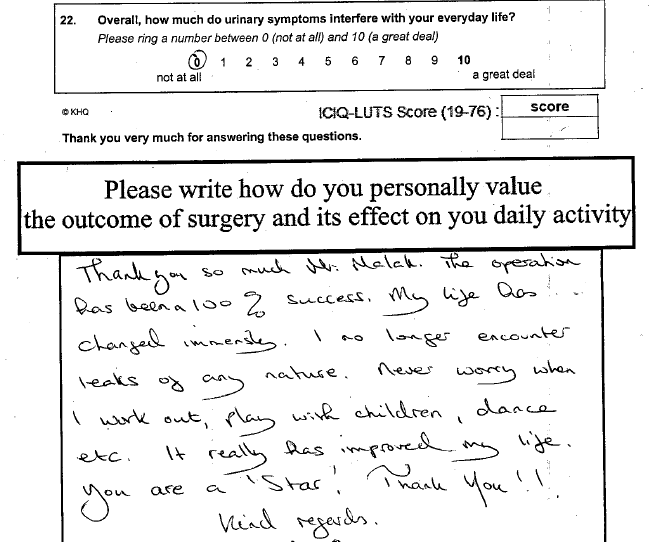 22. Overall, how much do urinary symptoms interfere with your everyday life?
Please ring a number between 0 (not at all) and 10 (a great deal)
0 1 2 3 4 5 6 7 8 9 10
not at all a great deal
© KHQ
ICIQ-LUTS Score (19-76) : score
Thank you very much for answering these questions.
Please write how do you personally value
the outcome of surgery and its effect on you daily activity
Thank you so much Mr. Malak. The operation
has been a 100% success. My life has
changed immensely. I no longer encounter
leaks of any nature. Never worry when
I work out, play with children, dance
etc. It really has improved my life.
You are a 'Star'! Thank You!!
Kind regards.